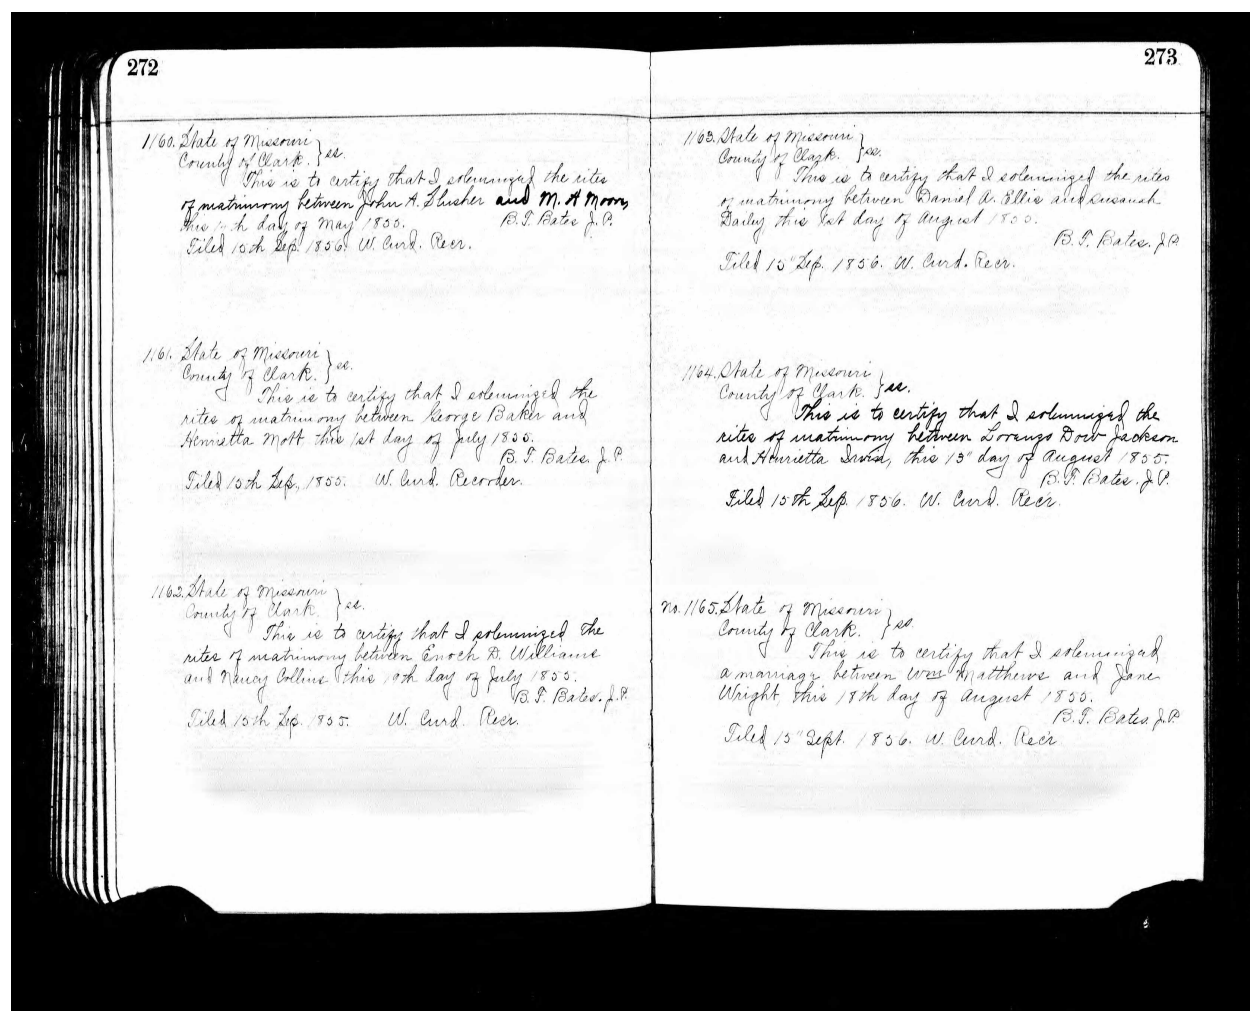 272
1160. State of Missouri
County of Clark. } ss.
This is to certify that I solemnized the rites
of matrimony between John A. Slusher and M. A Moon,
this day of May 1855.
B. F. Bates J. P.
Filed 15th Sep. 1856. W. Curd. Recr.
1161. State of Missouri
County of Clark. } ss.
This is to certify that I solemnized the
rites of matrimony between George Baker and
Henrietta Mott this 1st day of July 1855.
B. F. Bates. J. P.
Filed 15th Sep, 1855. W. Curd. Recorder.
1162. State of Missouri
County of Clark. } ss.
This is to certify that I solemnized the
rites of matrimony between Enoch D. Williams
and Nancy Collins this 19th day of July 1855.
B. F. Bates. J. P.
Filed 15th Sep. 1855. W. Curd. Recr.
273
1163. State of Missouri
County of Clark. } ss.
This is to certify that I solemnized the rites
of matrimony between Daniel A. Ellis and Susanah
Dailey this 1st day of August 1855.
B. F. Bates. J. P.
Filed 15" Sep. 1856. W. Curd. Recr.
1164. State of Missouri
County of Clark. } ss.
This is to certify that I solemnized the
rites of matrimony between Loranzo Dow Jackson
and Henrietta Irvin, this 13" day of August 1855.
B. F. Bates. J. P.
Filed 15th Sep. 1856. W. Curd. Recr.
No. 1165. State of Missouri
County of Clark. } ss.
This is to certify that I solemnized
a marriage between Wm Matthews and Jane
Wright, this 18th day of August 1855.
B. F. Bates J. P.
Filed 15" Sept. 1856. W. Curd. Recr